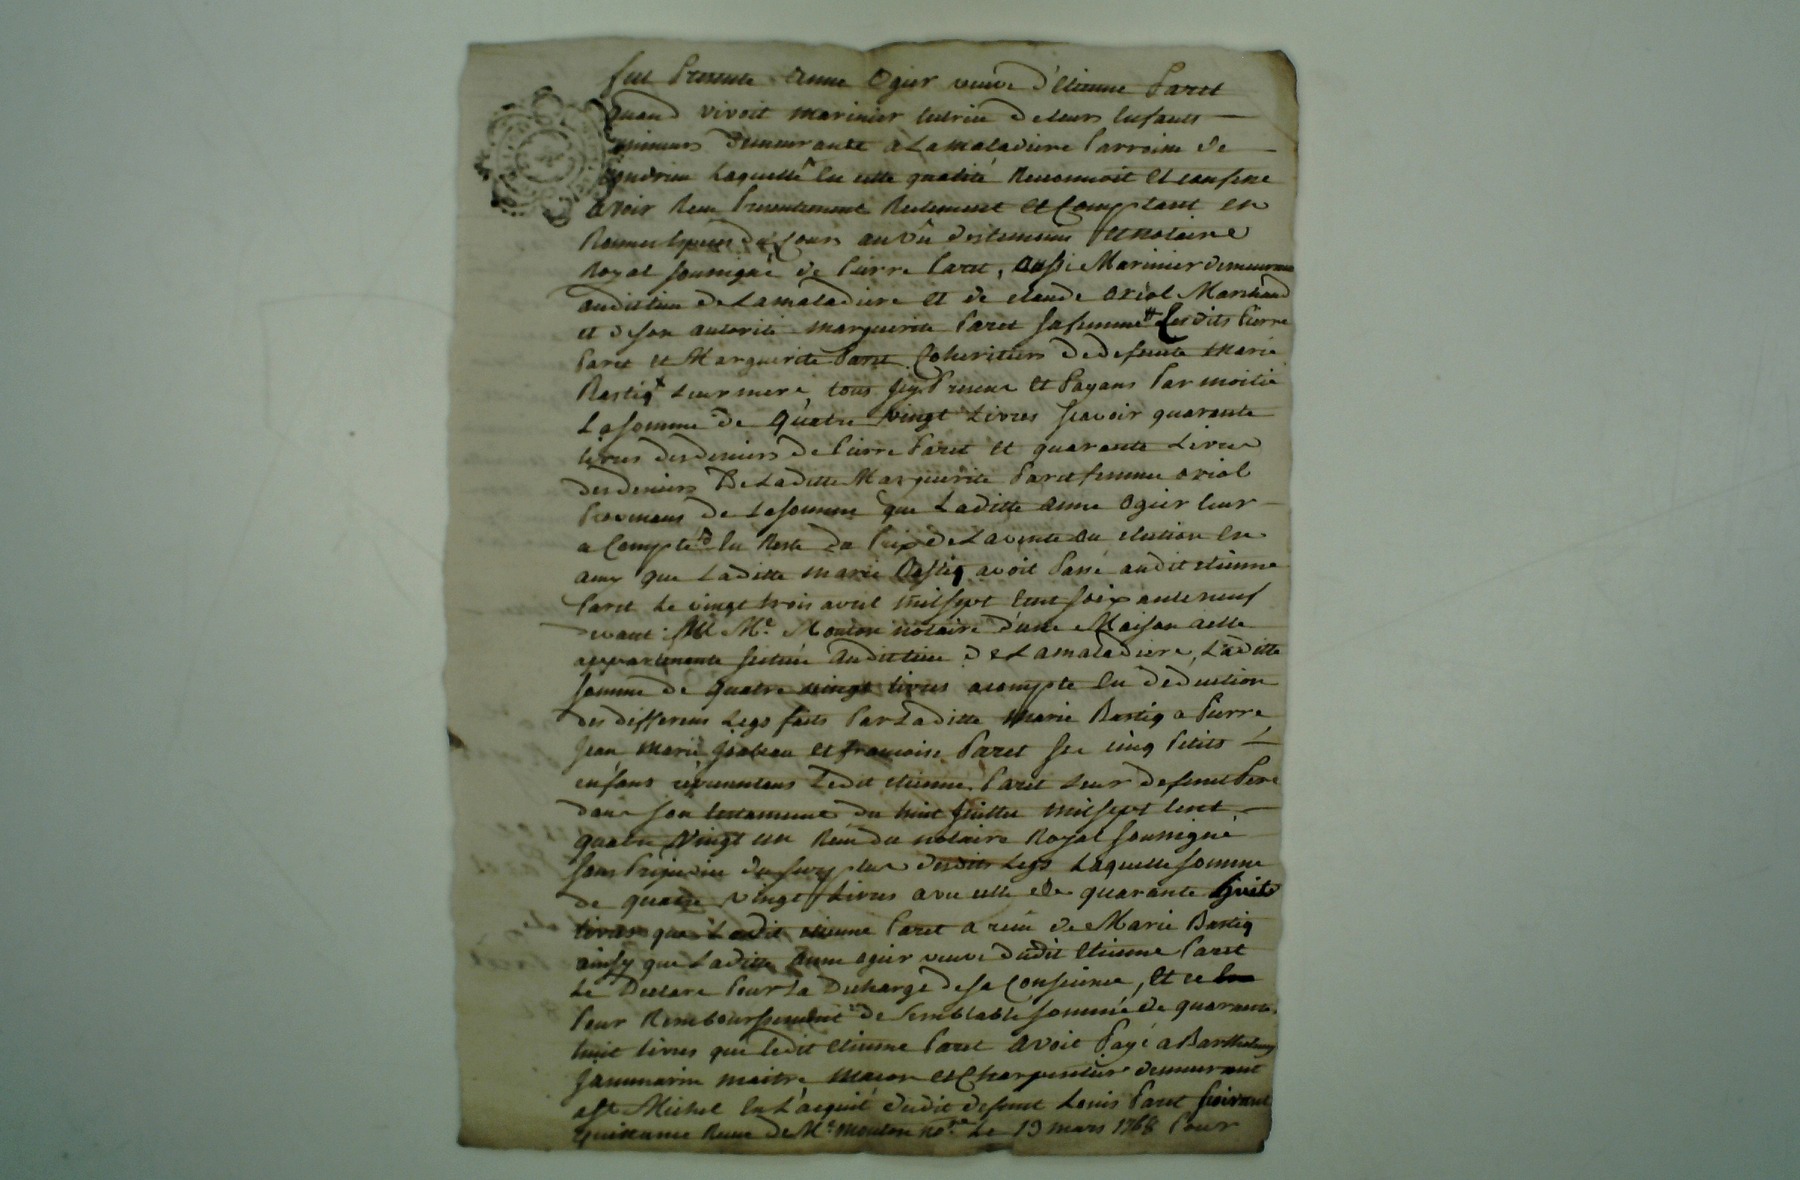 fut Presente Anne Ogier veuve d'Etienne Paret
quand vivoit marinier tutrice de leurs Enfants
mineurs demeurante a Lamaladiere Parroisse de
Condrieu Laquelle En cette qualité Reconnoit Et confesse
avoir Recu Presentement Reelement et Comptant en
du Cours au vû des temoins Et notaire
Royal soussigné de Pierre Paret, aussi Marinier demeurant
audit lieu de Lamaladiere et de claude oriol Marchand
et de son autorité marguerite Paret sa femme Lesdits Pierre
Paret et Marguerite Paret Coheritiers de defunte Marie
Bastiq Leur mere, tous icy Presens Et Payans Par moitié
La somme de Quatre vingt Livres scavoir quarante
livres des deniers de Pierre Paret et quarante Livres
des deniers De Laditte Marguerite Paret femme oriol
Provenans de La somme que Laditte anne Ogier leur
a Compté En Reste du Prix de La vente ou election en
amy que Laditte marie Bastiq avoit Passé audit etienne
Paret Le vingt trois avril mil sept Cent soixante neuf
devant Me Mouton notaire d'une Maison a elle
appartenante scituée audit lieu de Lamaladiere, Laditte
somme de quatre vingt livres acompte En deduction
des differens Legs faits Par Laditte Marie Bastiq a Pierre
Jean Marie Isabeau et francoise Paret ses cinq Petits
enfans representans Ledit etienne Paret Leur defunt Pere
dans son testament du huit Juillet mil sept Cent
quatre vingt un Recu du notaire Royal soussigné
sans Prejudice du surplus desdits Legs Laquelle somme
de quatre vingt Livres avec celle de quarante huit
livres que Ledit etienne Paret a recu de Marie Bastiq
ainsy que Laditte Anne ogier veuve dudit Etienne Paret
Le Declare Pour La Decharge de sa Conscience, Et ce
Pour Remboursement de semblable somme de quarante
huit livres que ledit Etienne Paret avoit Payé a Barthelemy
maitre macon et Charpentier demeurant
a St Michel En L'acquit dudit defunt Louis Paret suivant
quittance Recue de Me Mouton nore Le 19 mars 1768 Pour